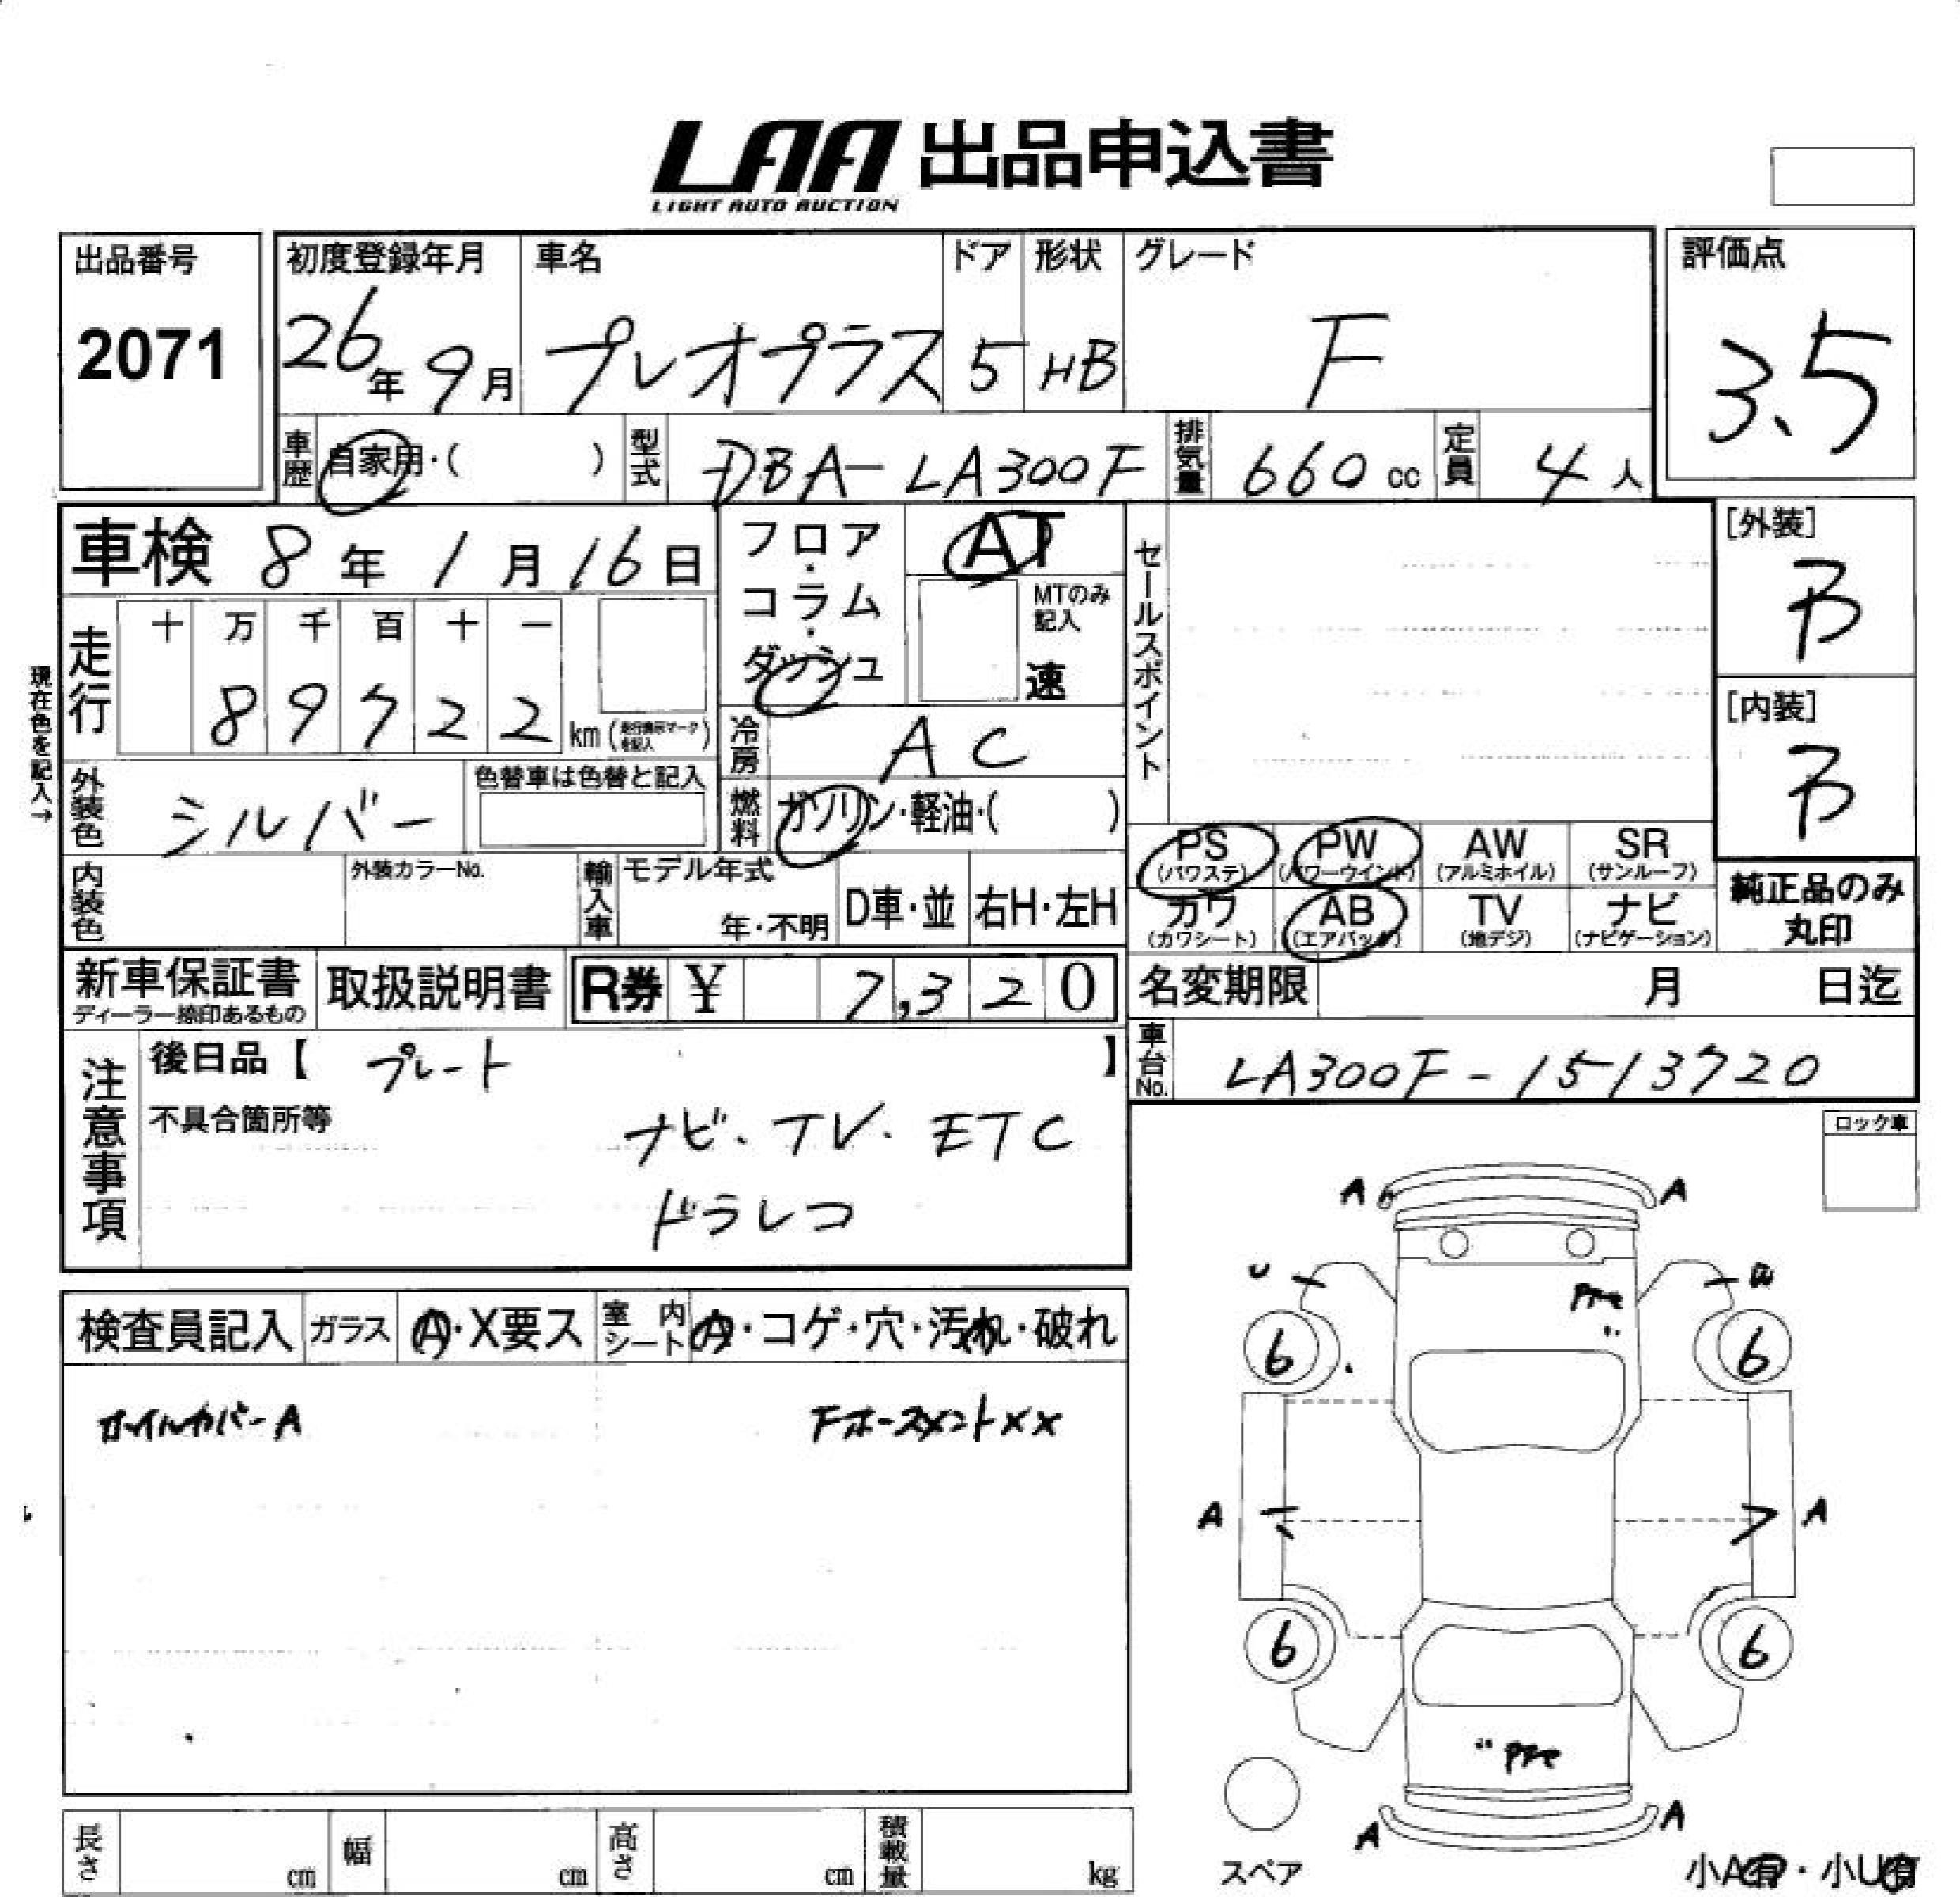 LAA 出品申込書
LIGHT AUTO AUCTION
出品番号 初度登録年月 車名 ドア 形状 グレード 評価点
2071 26年 9月 プレオプラス 5 HB F 3.5
車歴 自家用・( ) 型式 DBA-LA300F 排気量 660cc 定員 4人
車検 8年 1月 16日 フロア・コラム・ダッシュ AT セールスポイント [外装]
B
MTのみ記入
速
走行 十 万 千 百 十 一
89722 km (走行表示マークを記入)
[内装]
B
現在色を記入→
冷房 AC
外装色 シルバー 色替車は色替と記入 燃料 ガソリン・軽油・( )
PS (パワステ) PW (パワーウインド) AW (アルミホイル) SR (サンルーフ)
内装色 外装カラーNo. 輸入車 モデル年式 年・不明 D車・並 右H・左H
カワ (カワシート) AB (エアバック) TV (地デジ) ナビ (ナビゲーション)
純正品のみ
丸印
新車保証書 取扱説明書 R券 ¥ 7,320 名変期限 月 日迄
ディーラー捺印あるもの
車台No. LA300F-1513720
注意事項 後日品【 プレート 】
不具合箇所等 ナビ・TV・ETC
ドラレコ
ロック車
A A
U
検査員記入 ガラス A・X要ス 室内シート A・コゲ・穴・汚れ・破れ
6 6
ホイルカバーA Fホースメント××
A A
6 6
A A
長さ cm 幅 cm 高さ cm 積載量 kg
スペア 小A有・小U有